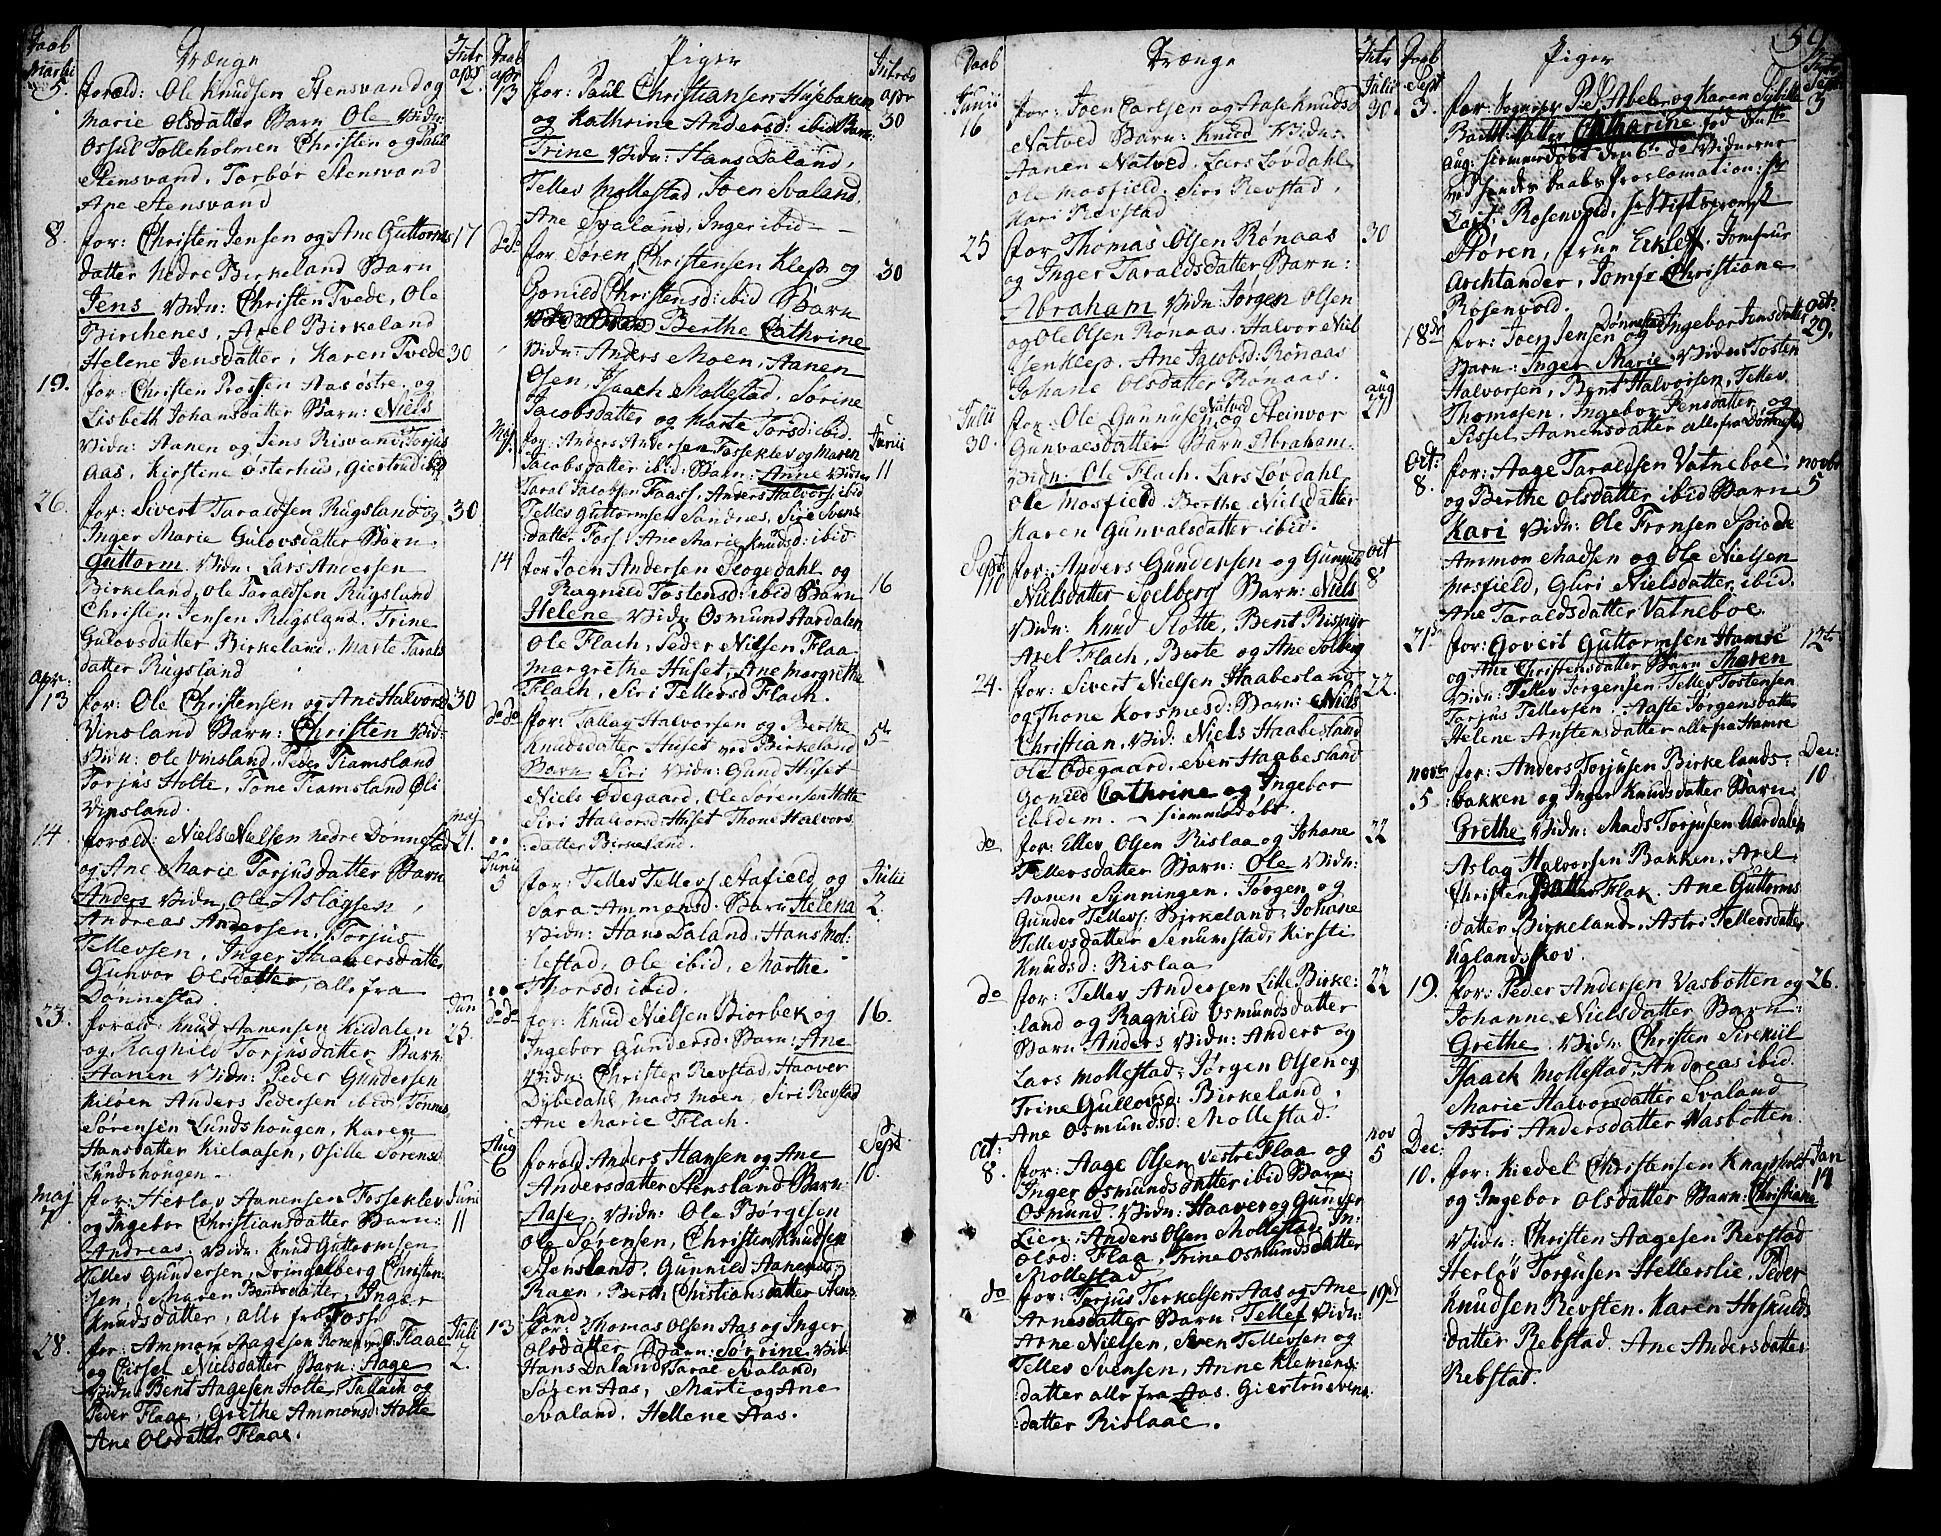 Daab
Drænge
Intr
Martii
5.
foræld: Ole Knudsen Stensvand og
apr
2.
Marie Olsdatter Barn Ole Vidn:
Osful Tolleholmen Christen og Paul
Stensvand, Torbør Stensvand
Ane Stensvand
8.
for: Christen Jensen og Ane Guttorms
17
datter Nedre Birkeland Barn
Jens Vidn: Christen Tvede, Ole
Birchenes, Axel Birkeland
Helene Jensdatter, Karen Tvede
30
19.
for: Christen Rossen Aas østre og
Lisbeth Johansdatter Barn: Niels
Vidn: Aanen og Jens Risvand, Torjus
Aas, Kirstine Østerhus, Giertrud ibid
26.
for: Sivert Taraldsen Rugsland og
30
Inger Marie Gulovsdatter Barn.
Guttorm. Vidn: Lars Andersen
Birkeland, Ole Taraldsen Rugsland
Christen Jensen Rugsland, Trine
Gulovsdatter Birkeland, Marte Tarals
datter Rugsland
apr:
13
for: Ole Christensen og Ane Halvorsd
30
Vinsland Barn: Christen Vid-
Vidn: Ole Vinsland, Peder Tiamsland
Torjus Holte, Tone Tiamsland, Oli
Vinsland.
14.
foræld: Niels Nielsen nedre Dønnestad
maj
21.
og Ane Marie Torjusdatter Barn
Anders Vidn, Ole Aslagsen,
Andreas Andersen, Torjus
Tellevsen, Inger
Gunvor Olsdatter, alle fra
Dønnestad.
23.
forald: Knud Aanensen Kildalen
Jun
25.
og Ragnild Torjusdatter Barn:
Aanen Vidn: Peder Gundersen
Kiløen Anders Pedersen ibid, Tønnes
Sørensen Lundshougen, Karen
Hansdatter Kielaasen, Osille Sørensd
Lundshougen.
Maj
7.
for: Herlov Aanensen Fosseklev
Juni
11
og Ingebor Christiansdatter Barn:
Andreas. Vidn: Knud Guttormsen
Tellev Gundersen, Christen-
sen, Maren Bentsdatter, Inger
Knudsdatter, alle fra Foss.
28.
for: Ammon Aagesen Flaae
Juli
2.
og Sissel Nielsdatter Barn: Aage
Vidn: Bent Aagesen Holte, Tallack og
Peder Flaae, Grethe Ammonsd: Holte
Ane Olsdatter Flaae.
Daab
Piger
Introd
apr
13
for: Paul Christiansen Husebakken
apr
30
og Kathrine Andersd: ibid Barn:
Trine Vidn: Hans Daland,
Tellev Mollestad, Joen Svaland,
Ane Svaland, Inger ibid
do do
for Søren Christensen Klep og
30
Gonild Christensd: ibid Barn
Berthe Cathrine
Vidn: Anders Moen, Aanen
Osen, Isaach Mollestad, Sørine
Jacobsdatter og Marte Torsd: ibid.
Maj
7.
for: Anders Andersen Fosseklev og Maren
Junii
11
Jacobsdatter ibid: Barn: Anne Vidn:
Taral Jacobsen Faass, Anders Halvors: ibid
Tellev Guttormsen Sandnes, Sire Svens
datter Fors, Ane Marie Knudsd: ibid
14
for Joen Andersen Skogedahl og
16
Ragnild Tostensd: ibid Barn
Helene Vidn: Osmund Hardalen
Ole Flach, Peder Nilsen Flaa
Margrethe Huset, Ane Margrethe
Flach, Siri Tellevsd Flach.
do do
for: Tallag Halvorsen og Berthe
5te
Knudsdatter Huset ved Birkeland
Barn Siri Vidn: Gund Huset
Niels Ødegaard, Ole Sørensen Holte
Siri Halvorsd: Huset Thone Halvors
datter Birkeland.
Junii
5
for: Tellev Tellevs: Aafield og
Julii
2.
Sara Ammonsd: Barn: Helena
Vidn: Hans Daland, Hans Mol:
:lestad, Ole ibid, Marthe
Thorsd: ibid.
do do
for: Knud Nielsen Biorbek og
16.
Ingebor Gundersd: Barn: Ane
Vidn: Christen Revstad, Haaver
Dybedahl, Mads Moen, Siri Revstad
Ane Marie Flach.
Aug
6
forald: Anders Hansen og Ane
Sept
10.
Andersdatter Stensland Barn:
Aase. Vidn: Ole Børgesen
Ole Sørensen, Christen Knudsen
Stensland, Gunnild Aanensd:
Raen, Berth Christiansdatter Stens
land.
13
for: Thomas Olsen Aas og Inger
Olsdatter Barn: Sørrine Vid:
Hans Daland, Taral Svaland,
Søren Aas, Marte og Ane
Svaland, Hellene Aas.
Daab
Drænge
Intr
Junii
16
for: Joen Carlsen og Aase Knudsd
Julii
30.
Natved Barn: Knud Vidn:
Aanen Natved, Lars Lovdahl
Ole Mosfield, Siri Revstad,
Kari Revstad
25
for Thomas Olsen Rønaas
30
og Inger Taraldsdatter Barn:
Abraham Vidn: Jørgen Olsen
og Ole Olsen Rønaas. Halvor Niel
sen Klep, Ane Jacobsd: Rønaas
Johane Olsdatter Rønaas.
Julii
30.
for: Ole Gunnufsen Natved og Steinvor
aug
27
Gunvaldsdatter Barn Abraham.
Vidn: Ole Flach, Lars Lovdahl
Ole Mosfield, Berthe Nielsdatter
Karen Gunvalsdatter ibid.
Sept:
10
for: Anders Gundersen og Gunnild
Oct
8
Nielsdatter Solberg Barn: Niels
Vidn: Knud Slotte, Bent
Axel Flach, Berte og Ane Solberg
24.
for: Sivert Nielsen Haabesland
22.
og Thone Korsmesd: Barn: Niels
Christian, Vid: Niels Haabesland
Ole Ødegaard, Even Haabesland
Gonild Cathrine og Ingebor
Ebidem. – hiemmedøbt.
do
for: Ellev Olsen Rislaa og Johane
22
Tellevsdatter Barn: Ole Vidn:
Aanen Synningen, Jørgen og
Gunder Tellevs: Birkeland, Johane
Tellevsdatter Senumstad, Kirsti
Knudsd: Rislaa
do
for: Tellev Andersen Lille Birke:
22
:land og Ragnild Osmundsdatter
Barn Anders Vidn: Anders og
Lars Mollestad, Jørgen Olsen og
Trine Gullovsd: Birkeland,
Ane Osmundsd: Mollestad.
Oct:
8.
for: Aage Olsen Vestre Flaa og
nov
5
Inger Osmundsdatter ibid Barn:
Osmund. Vidn: Haaver og Gunder
Lien, Anders Olsen Mollestad, In-
Olsd: Flaa, Trine Osmundsdatter
Mollestad
do
for: Torjus Terkelsen Aas og Ane
19de
Arnesdatter Barn: Tellef Vidn:
Arne Nielsen, Sven Tellevsen og
Tellev Svensen, Anne Klemens:
:datter alle fra Aas. Giertru Svens:
:datter Rislaae.
Daab
Piger
54
Sept
3.
for: Sogneprs P. S. Abel og Karen Sybille
Sept
3
datter Catharine fød
aug: hiemmedøbt den 6te do Vidnerne
ved hendes Daabs Proclamation: Hr
Capt: Rosenvold,
Støren, frue Ekleff, Jomfrue
Archtander, Jomfr Christiane
Rosenvold.
18de
for: Joen Jensen Dønnestad og Ingebor Jensdatter
Oct:
29.
Barn: Inger Marie. Vidn: Tosten
Halvorsen, Bent Halvorsen, Tellev
Thomasen, Ingebor Jensdatter og
Sissel Aanensdatter alle fra Dønnestad
Oct:
8.
for: Aage Taraldsen Vatneboe
novbr
5
og Berthe Olsdatter ibid Barn
Kari Vidn: Ole Fronsen
Ammon Madsen og Ole Nielsen
Mosfield, Guri Nielsdatter ibid.
Ane Taraldsdatter Vatneboe.
21de
for: Govert Guttormsen Hamre
12te
og Ane Christensdatter Barn Maren
Vidn: Tellev Jorgensen, Tellev Tostensen
Torjus Tellevsen, Aaste Jørgensdatter
Helene Anstensdatter alle fra Hamre
novbr
5
for: Anders Torjusen Birkelands-
Dec:
10
:bakken og Inger Knudsdatter Barn:
Grethe Vidn: Mads Torjusen Aardalen
Aslag Halvorsen Bakken, Axel
Christen Flak. Ane Guttorms
datter, Birkeland, Astri Tellevsdatter
Uglandskov.
19.
for: Peder Andersen Vasbotten og
26.
Johanne Nielsdatter Barn:
Grethe. Vidn: Christen Sirekiil
Isaack Mollestad, Andreas ibid.
Marie Halvorsdatter Svaland
Astri Andersdatter Vasbotten.
Dec:
10.
for: Kiedel Christensen Knapholt
Jan
14
og Ingebor Olsdatter Barn: Christiane
Vidn: Christen Aagesen Revstad
Herløv Torgusen Hellerslie, Peder
Knudsen Revsten. Karen Hoskulds
datter Rebstad. Ane Andersdatter
Rebstad.